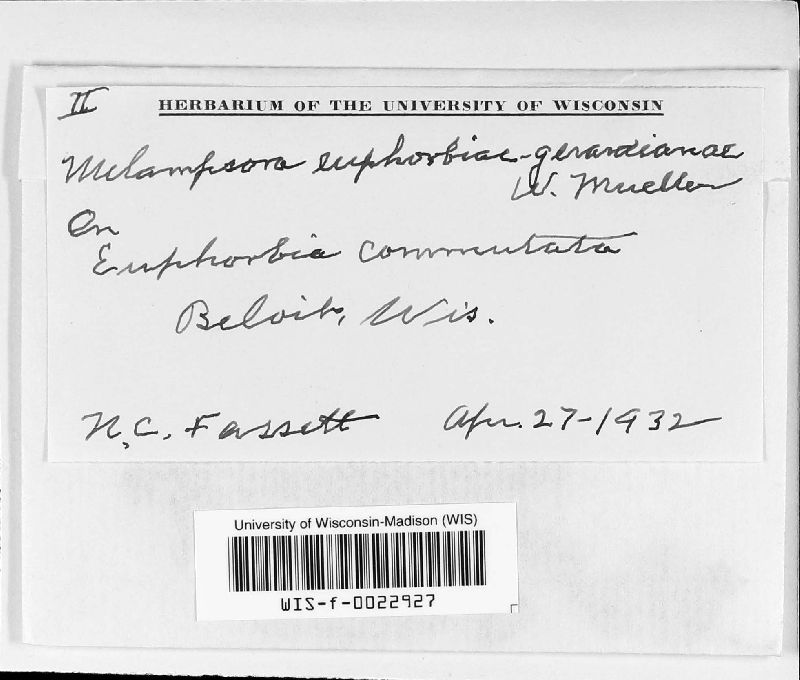 II HERBARIUM OF THE UNIVERSITY OF WISCONSIN
Melampsora euphorbiae-gerardianae
W. Mueller
On
Euphorbia commutata
Beloit, Wis.
N.C. Fassett Apr. 27-1932
University of Wisconsin-Madison (WIS)
WIS-f-0022927